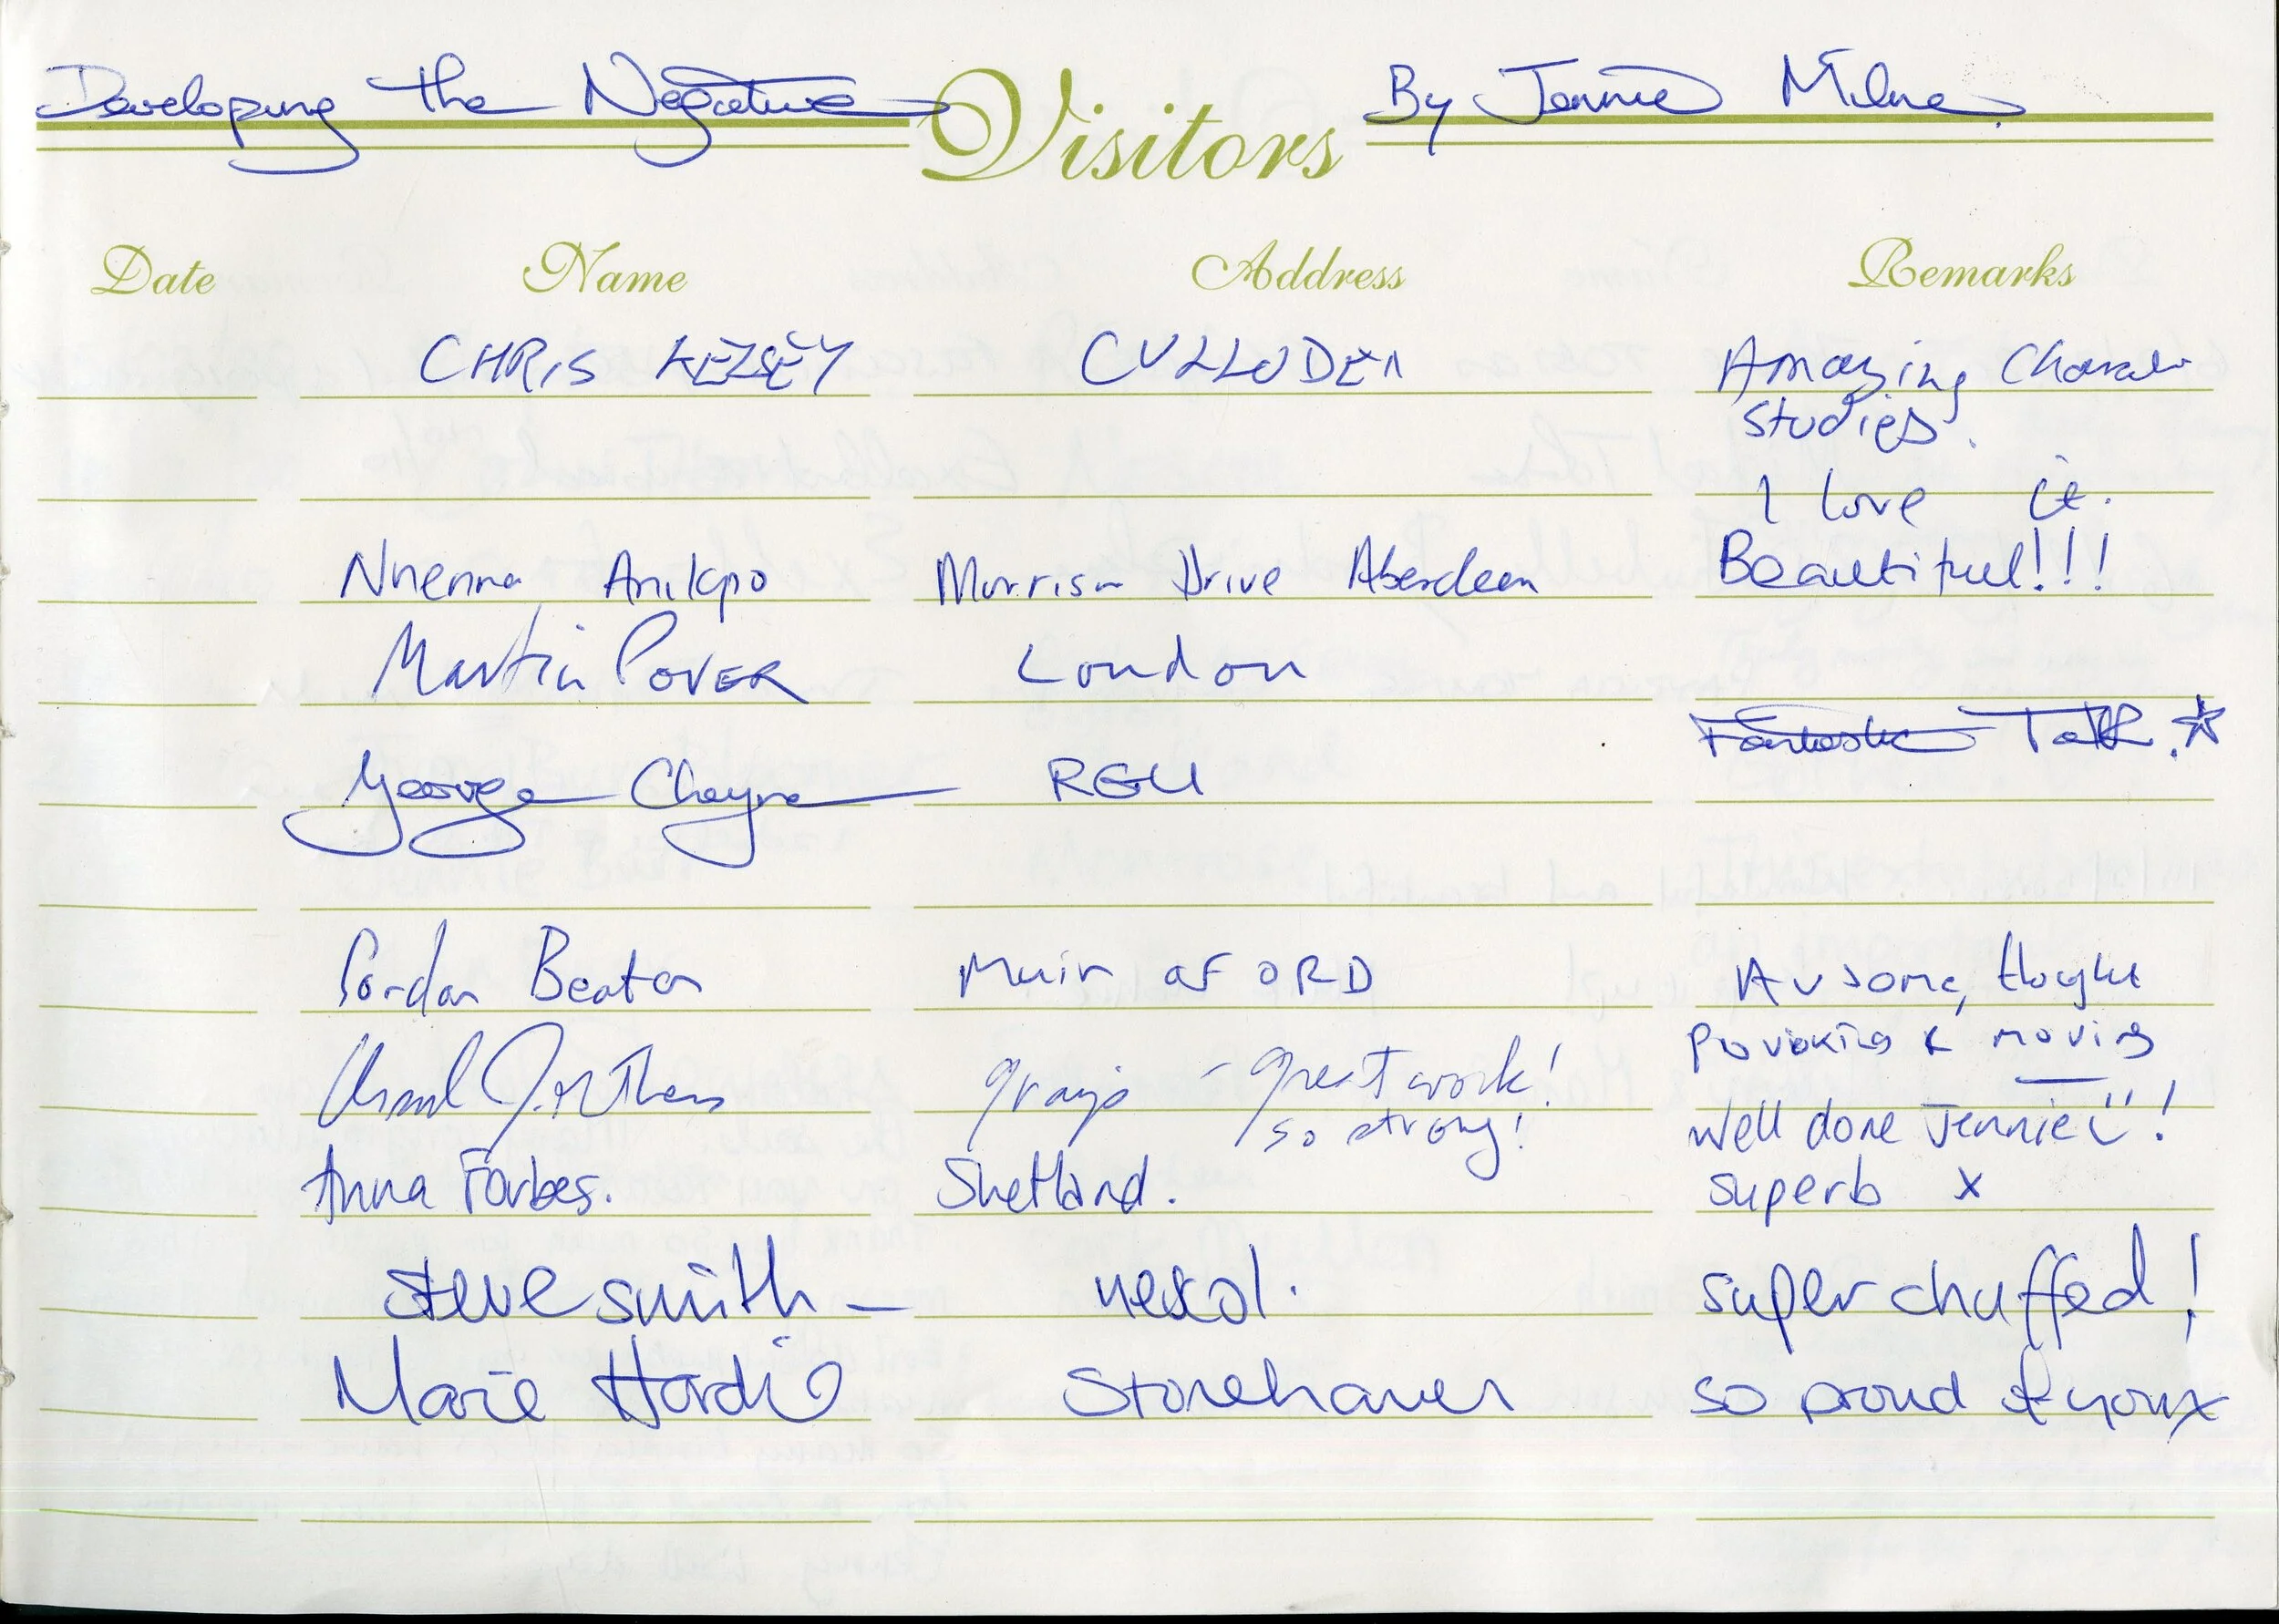 Developing the Negative Visitors By Jennie Milne.
Date Name Address Remarks
CHRIS KELSEY CULLODEN Amazing Character
studies.
I love it.
Nnenna Anikpo Morrison Drive Aberdeen Beautiful!!!
Martin POVER London
Fantastic Talk.☆
George Cheyne RGU
Gordon Beaton Muir of ORD Awsome, thought
provoking & moving
Grays - Great work!
so strong!
Well done Jennie Ü!
Anna Forbes. Shetland. Superb x
Steve smith — nescol. super chuffed!
Marie Hardie Stonehaven so proud of you x